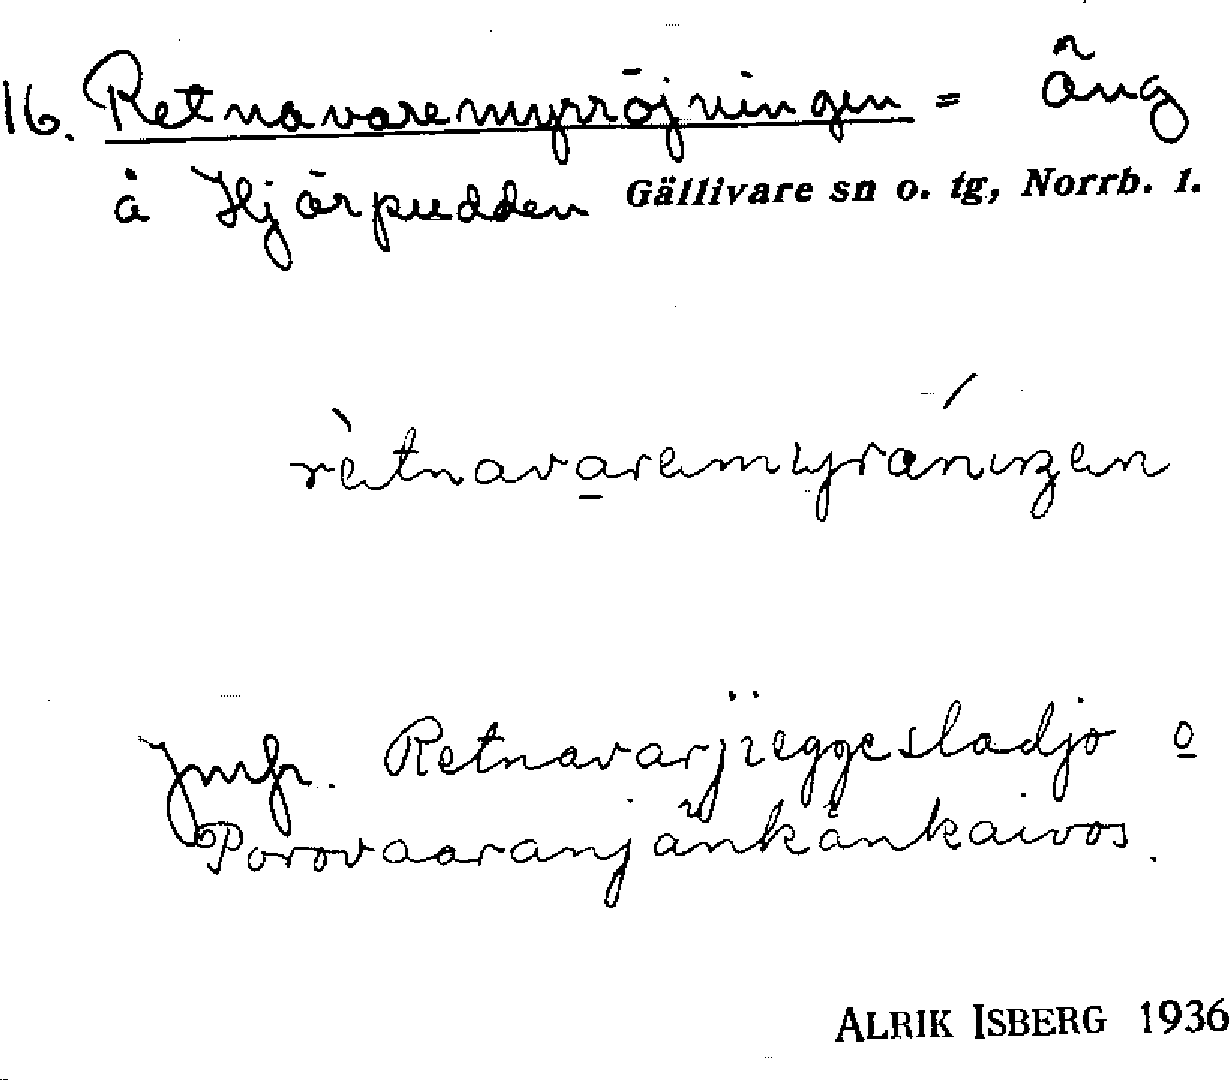 16. Retnavaremyrröjningen = äng
å Hjärpudden Gällivare sn o. tg, Norrb. l.
rètnavaremyrǻniŋen
Jmfr. Retnavarjieggesladjo o
Porovaaranjänkänkaivos.
ALRIK ISBERG 1936